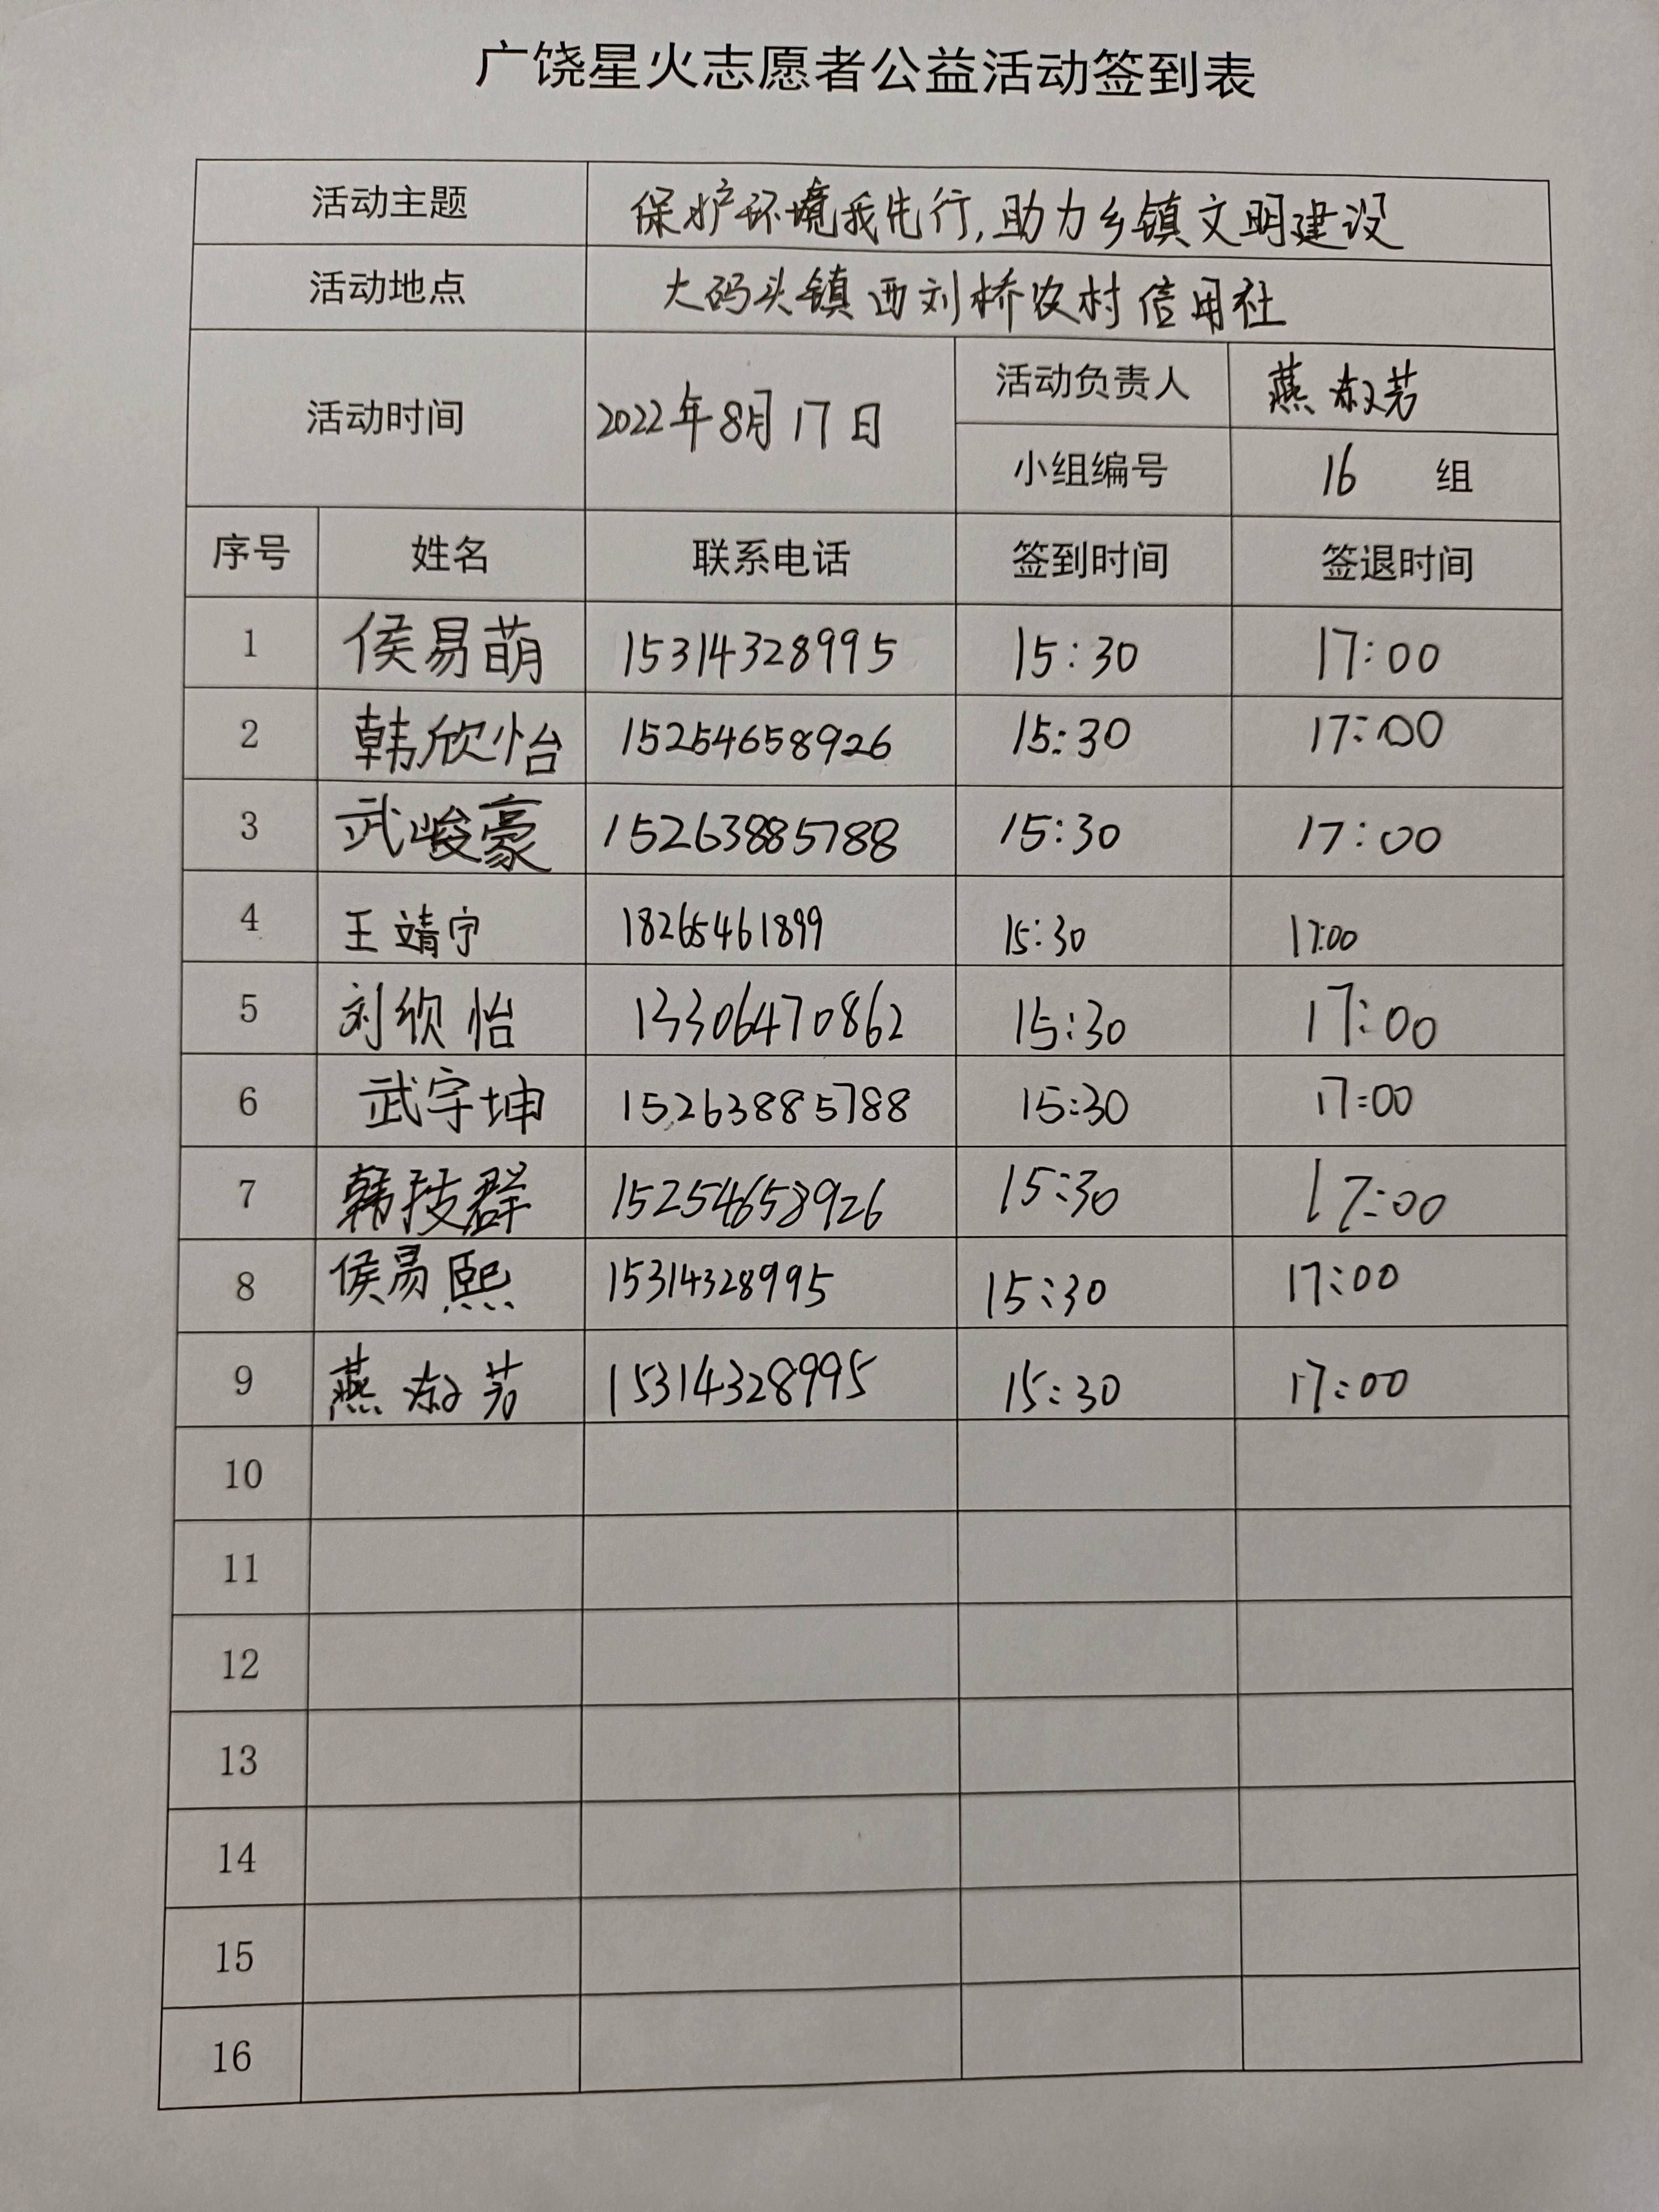 广饶星火志愿者公益活动签到表
活动主题 保护环境我先行,助力乡镇文明建设
活动地点 大码头镇西刘桥农村信用社
活动时间 2022年8月17日 活动负责人 燕淑芳
小组编号 16 组
序号 姓名 联系电话 签到时间 签退时间
1 侯易萌 15314328995 15:30 17:00
2 韩欣怡 15254658926 15:30 17:00
3 武峻豪 15263885788 15:30 17:00
4 王靖宁 18265461899 15:30 17:00
5 刘欣怡 13306470862 15:30 17:00
6 武宇坤 15263885788 15:30 17:00
7 韩技群 15254658926 15:30 17:00
8 侯易熙 15314328995 15:30 17:00
9 燕淑芳 15314328995 15:30 17:00
10
11
12
13
14
15
16